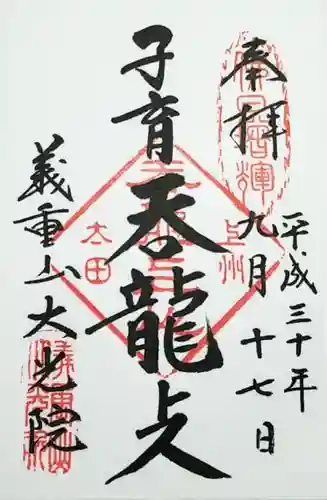 奉拝
平成三十年
九月十七日
子育呑龍上人
義重山大光院
上州
太田